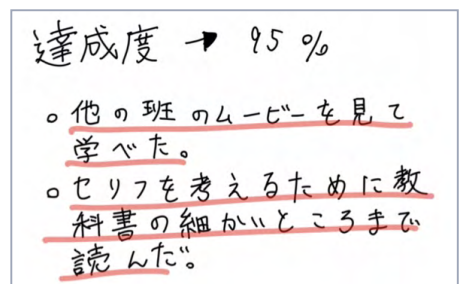 達成度 → 95%
○ 他の班のムービーを見て
学べた。
○ セリフを考えるために教
科書の細かいところまで
読んだ。